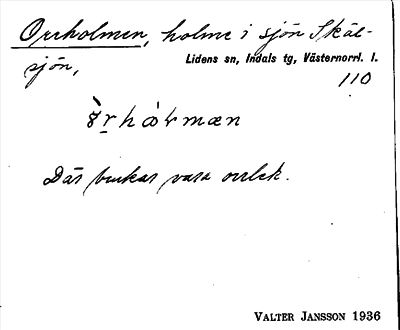 Orrholmen, holme i sjön Skäl-
sjön, Lidens sn, Indals tg, Västernorrl. l.
110
Där brukar vara orrlek.
VALTER JANSSON 1936